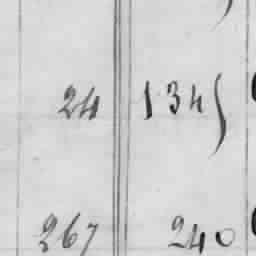 24 134
267 240